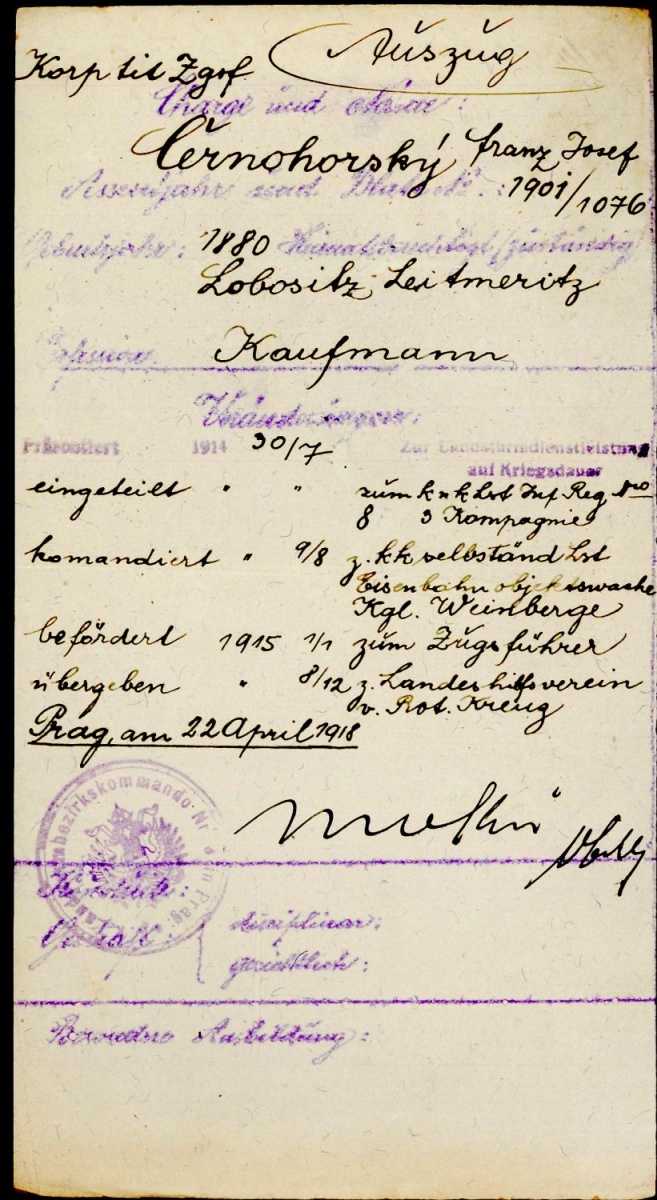 Auszug
Korp tit Zgsf
Charge und Name:
Černohorský Franz Josef
Assentjahr und Blatt Nº.: 1901/1076
Geburtsjahr: 1880 Heimatszuständig
Lobositz, Leitmeritz
Kaufmann
Veränderungen:
Präsentiert 1914 30/7 Zur Landsturmdienstleistung
auf Kriegsdauer
eingeteilt " " zum k u k Lst Inf Reg Nro
8 3 Kompagnie
komandiert " 9/8 z. kk selbständ Lst
Eisenbahnobjektswache
Kgl. Weinberge
befördert 1915 1/1 zum Zugsführer
übergeben " 8/12 z. Landeshilfsverein
v. Rot. Kreuz
Prag, am 22 April 1918
bezirkskommando Nr. in Prag
disciplinar:
gerichtlich:
Besondere Ausbildung: